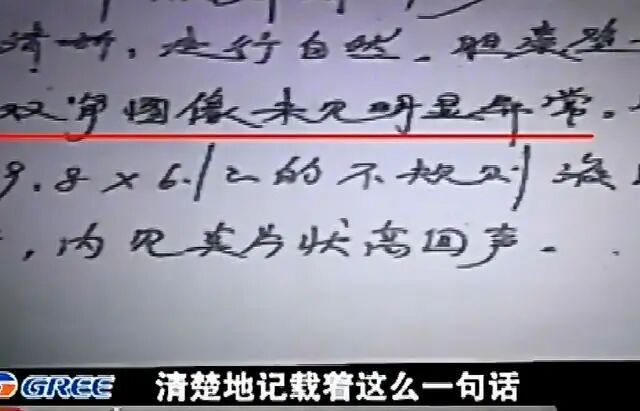 清晰，走行自然。胆囊
双肾图像未见明显异常。
9.8×6.12的不规则液
，内见点片状高回声。
GREE 清楚地记载着这么一句话